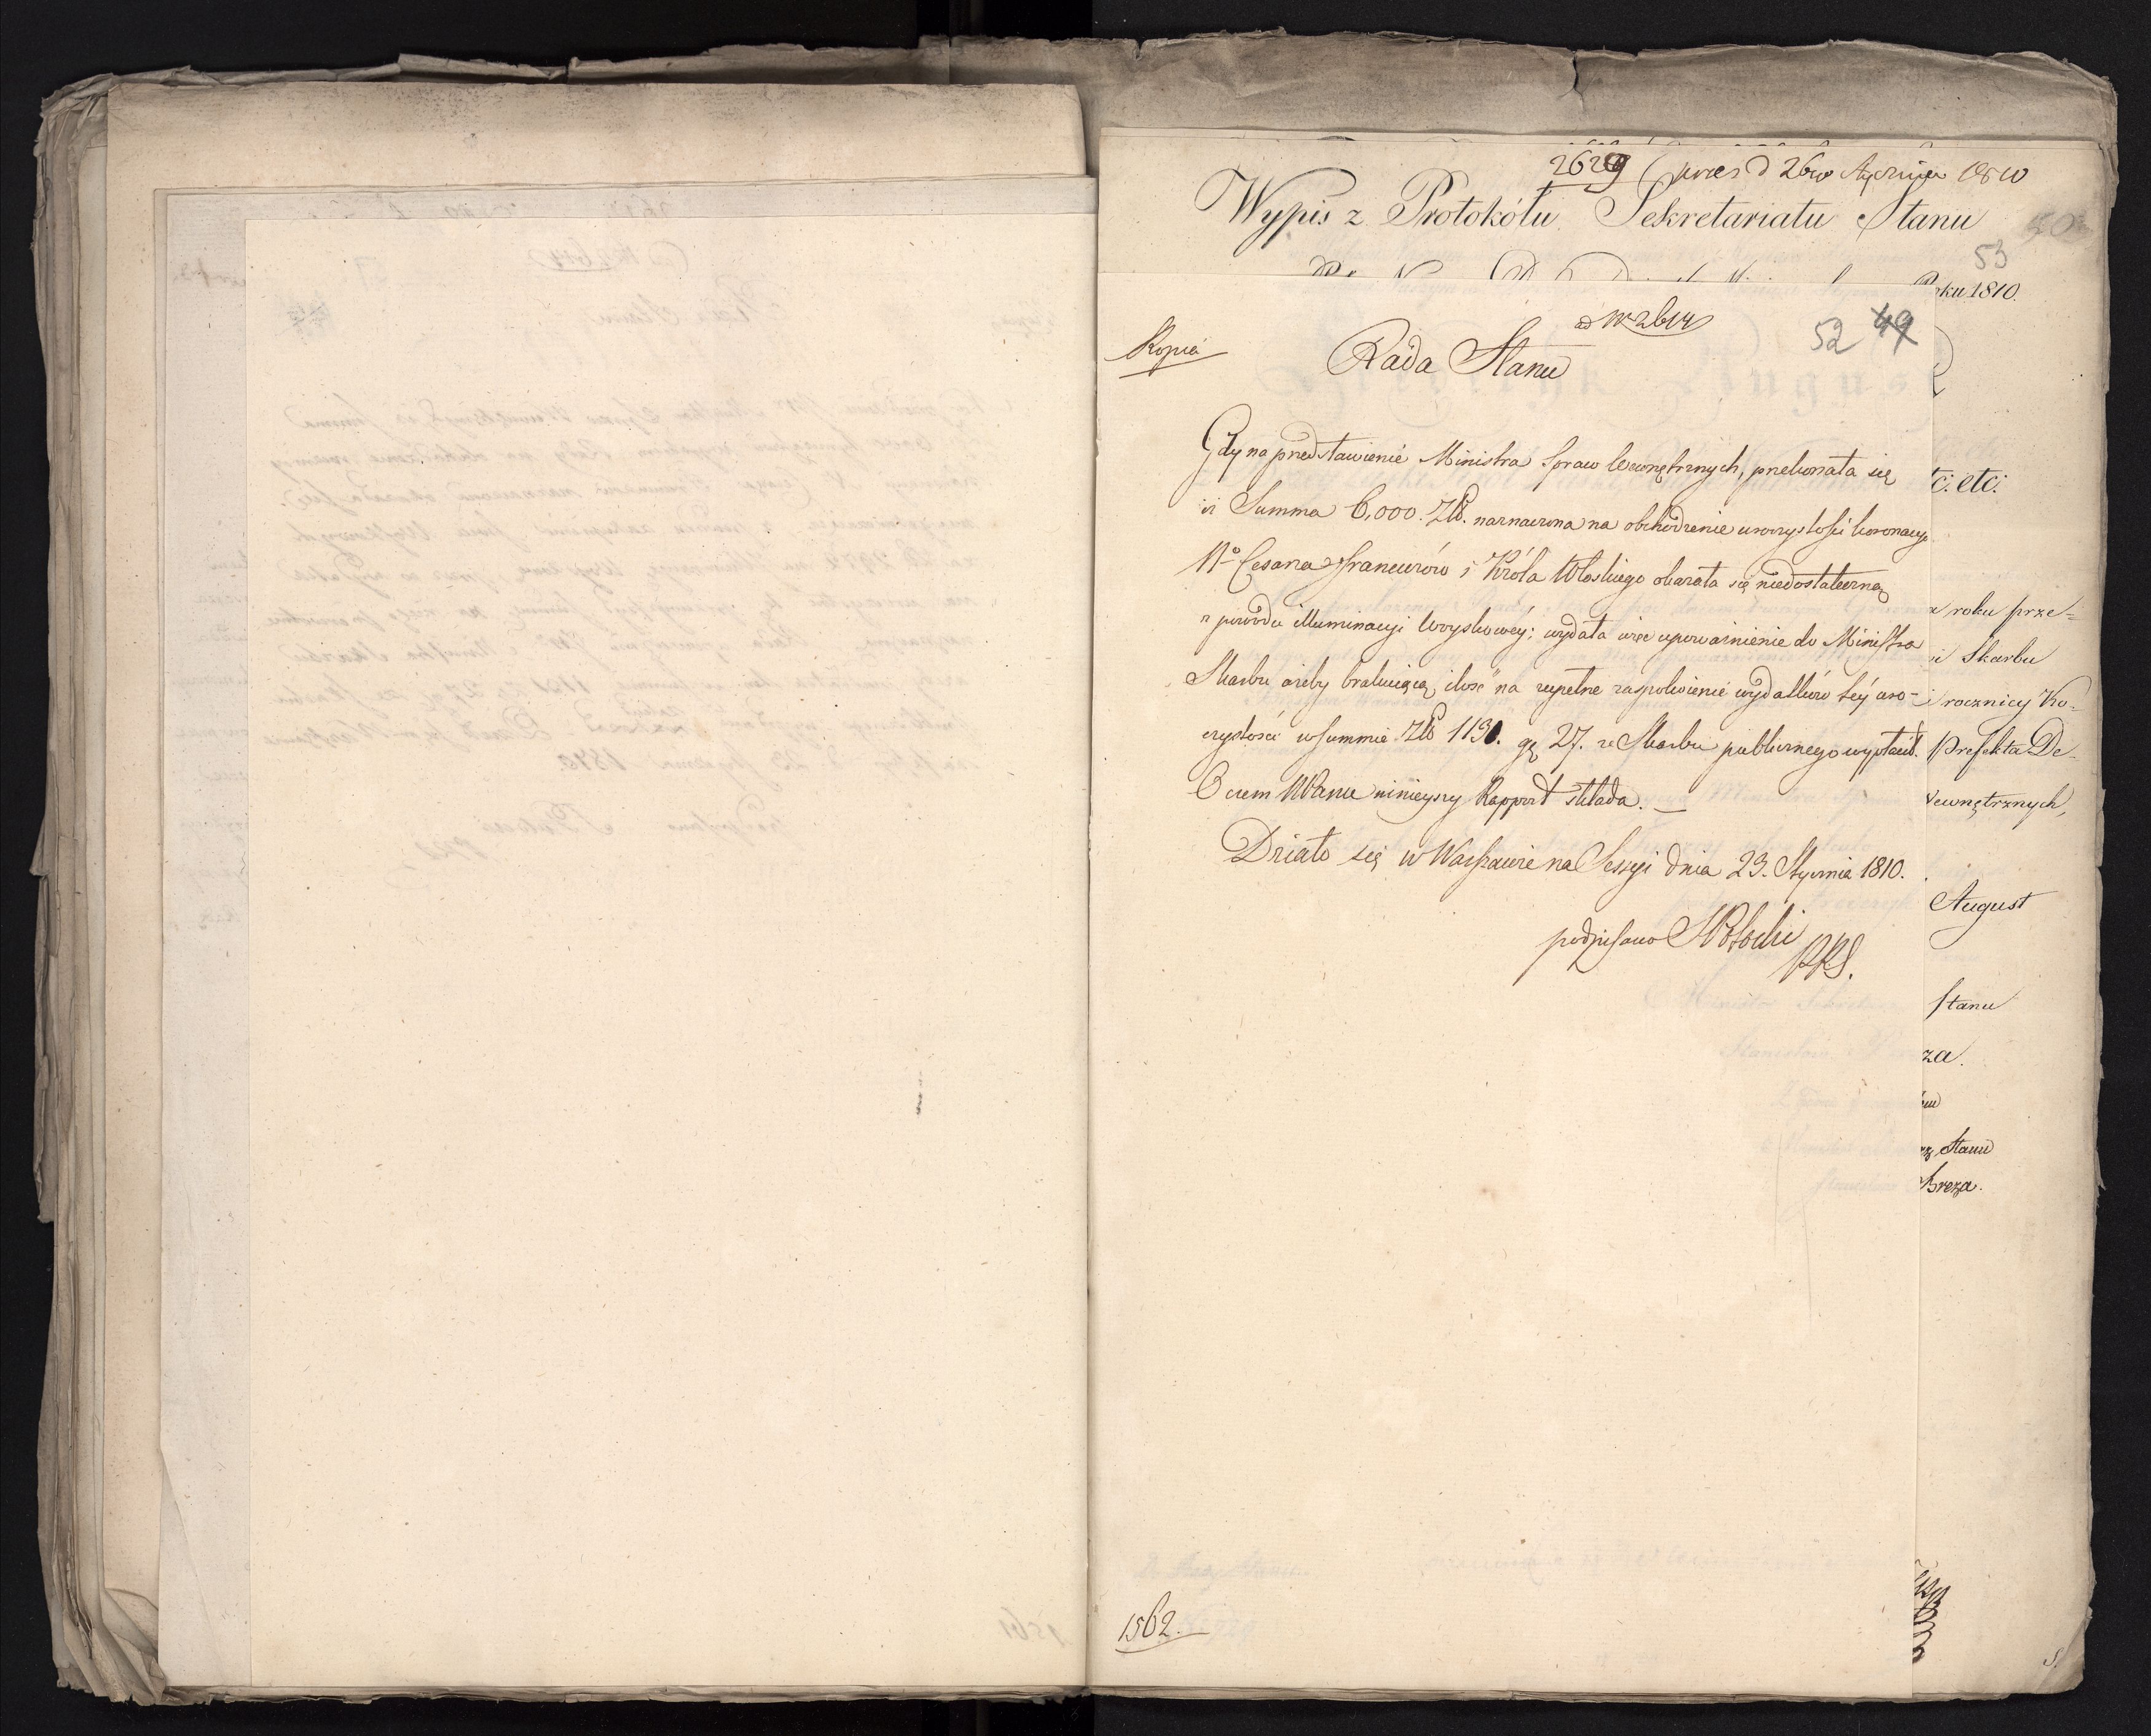 2629 pres d 26go Stycznia 1810
Wypis z Protokółu Sekretariatu Stanu
53
Roku 1810.
ad Nr 2614
52 49
Kopia
Rada Stanu
Gdy na przedstawienie Ministra Spraw Wewnętrznych, przekonała się
iż Summa 6,000. Złł. naznaczona na obchodzenie uroczystości koronacyi
No Cesarza Francuzów i Króla Włoskiego okazała się niedostateczną
z powodu illuminacyi woyskowéy; wydała więc upoważnienie do Ministra
Skarbu ażeby brakuiącą ilość na zupełne zaspokoienie wydatków téy uro-
czystości w summie Złł 1130. gę 27. ze Skarbu publicznego wypłacił.
O czem WPanu ninieyszy Rapport składa. —
Działo się w Warszawie na Sessyi dnia 23. Stycznia 1810.
podpisano S Potocki
PRS.
1562.
tc. etc.
roku prze-
Skarbu
rocznicy Ko-
Prefekta De-
ewnętrznych,
August
Stanu
za.
rz Stanu
Breza.